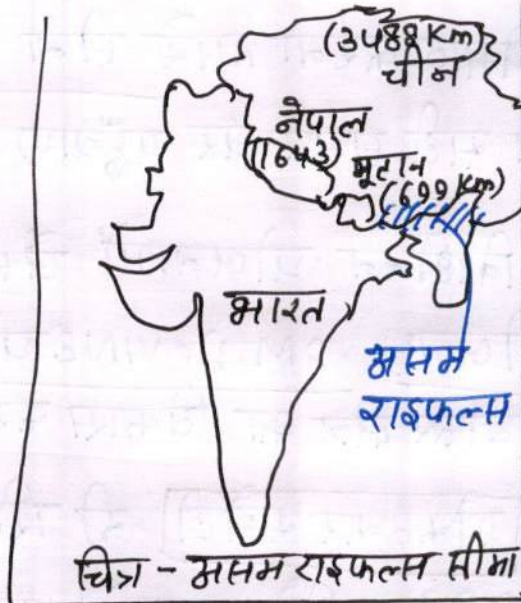 (3488 Km)
चीन
नेपाल
(1643)
भूटान
(699 Km)
भारत
असम
राइफल्स
चित्र - असम राइफल्स सीमा